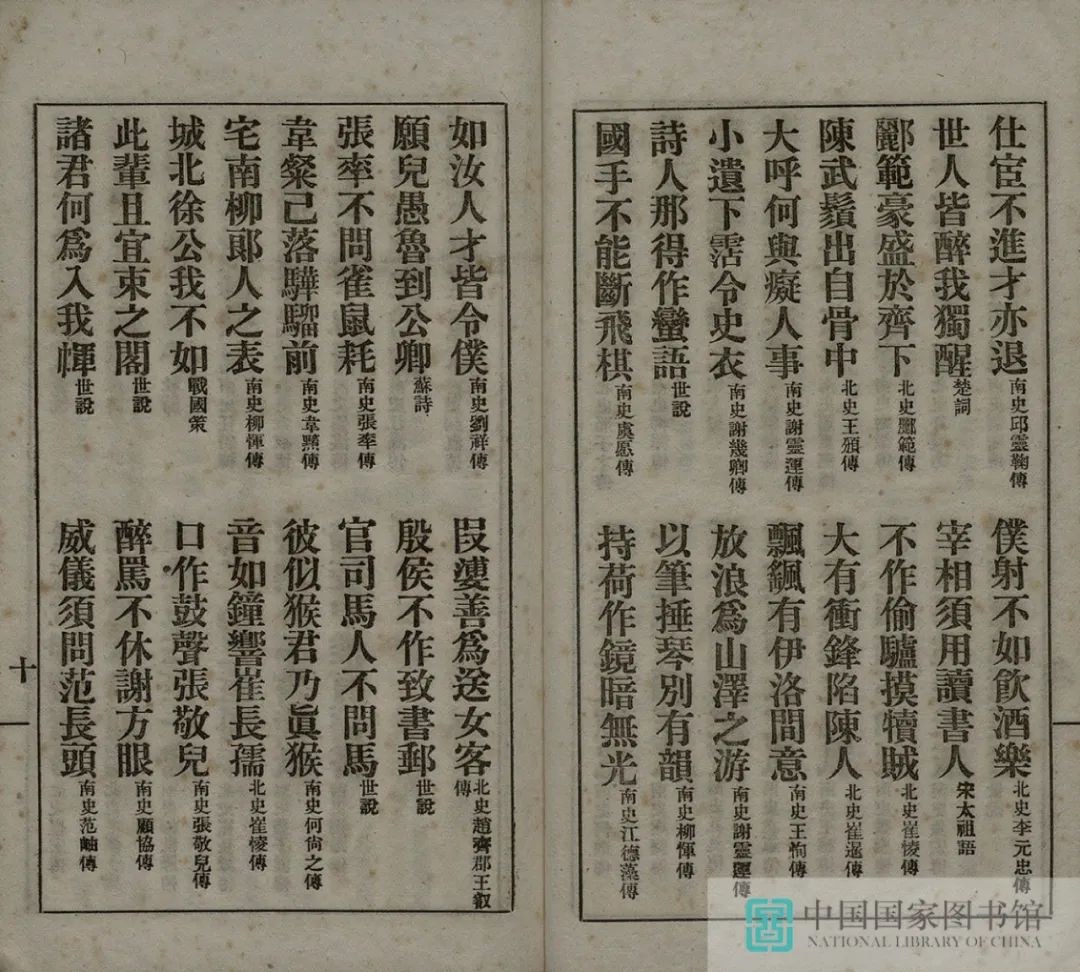 仕宦不進才亦退 南史邱靈鞠傳
僕射不如飲酒樂 北史李元忠傳
世人皆醉我獨醒 楚詞
宰相須用讀書人 宋太祖語
酈範豪盛於齊下 北史酈範傳
不作偷驢摸犢賊 北史崔㥄傳
陳武鬚出自骨中 北史王頒傳
大有衝鋒陷陳人 北史崔暹傳
大呼何與癡人事 南史謝靈運傳
飄颻有伊洛間意 南史王恂傳
小遺下霑令史衣 南史謝幾卿傳
放浪為山澤之游 南史謝靈運傳
詩人那得作蠻語 世說
以筆捶琴別有韻 南史柳惲傳
國手不能斷飛棋 南史虞愿傳
持荷作鏡暗無光 南史江德藻傳
如汝人才皆令僕 南史劉祥傳
段婆善為送女客 北史趙齊郡王叡傳
願兒愚魯到公卿 蘇詩
殷侯不作致書郵 世說
張率不問雀鼠耗 南史張率傳
官司馬人不問馬 世說
韋粲已落驊騮前 南史韋黯傳
彼似猴君乃眞猴 南史何尙之傳
宅南柳郎人之表 南史柳惲傳
音如鐘響崔長孺 北史崔㥄傳
城北徐公我不如 戰國策
口作鼓聲張敬兒 南史張敬兒傳
此輩且宜束之閣 世說
醉罵不休謝方眼 南史顧協傳
諸君何爲入我㡓 世說
威儀須問范長頭 南史范岫傳
十
中国国家图书馆
NATIONAL LIBRARY OF CHINA